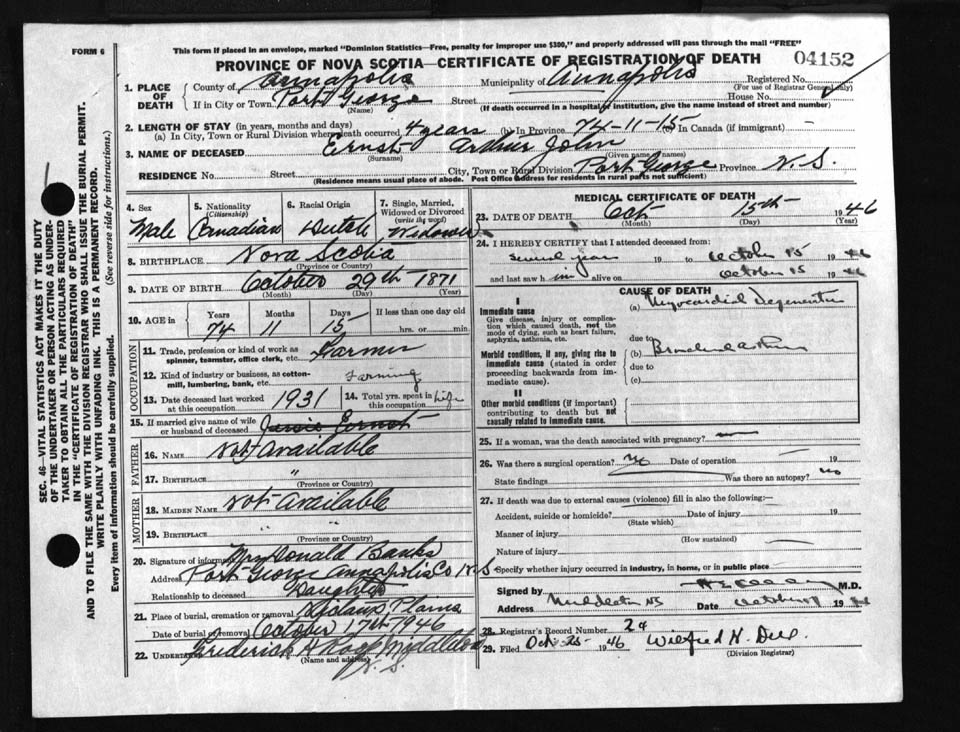 FORM 6
This form if placed in an envelope, marked "Dominion Statistics—Free, penalty for improper use $300," and properly addressed will pass through the mail "FREE"
PROVINCE OF NOVA SCOTIA—CERTIFICATE OF REGISTRATION OF DEATH 04152
1. PLACE OF DEATH County of Annapolis Municipality of Annapolis Registered No.
(For use of Registrar General only)
If in City or Town Port George Street House No.
(Name) (If death occurred in a hospital or institution, give the name instead of street and number)
2. LENGTH OF STAY (in years, months and days)
(a) In City, Town or Rural Division where death occurred 4 years (b) In Province 74-11-15 (c) In Canada (if immigrant) —
3. NAME OF DECEASED Ernst Arthur John
(Surname) (Given name or names)
RESIDENCE No. Street City, Town or Rural Division Port George Province N.S.
(Residence means usual place of abode. Post Office address for residents in rural parts not sufficient)
4. Sex Male
5. Nationality (Citizenship) Canadian
6. Racial Origin Dutch
7. Single, Married, Widowed or Divorced (write the word) Widower
8. BIRTHPLACE Nova Scotia
(Province or Country)
9. DATE OF BIRTH October 29th 1871
(Month) (Day) (Year)
10. AGE in Years Months Days If less than one day old
74 11 15 hrs. or min.
OCCUPATION
11. Trade, profession or kind of work as spinner, teamster, office clerk, etc. Farmer
12. Kind of industry or business, as cotton-mill, lumbering, bank, etc. Farming
13. Date deceased last worked at this occupation 1931
14. Total yrs. spent in this occupation Life
15. If married give name of wife or husband of deceased Ernst
FATHER
16. NAME Not Available
17. BIRTHPLACE "
(Province or Country)
MOTHER
18. MAIDEN NAME Not Available
19. BIRTHPLACE " "
(Province or Country)
20. Signature of informant Mrs Donald Banks
Address Port George Annapolis Co N.S
Relationship to deceased Daughter
21. Place of burial, cremation or removal Plains
Date of burial or removal October 17th 1946
22. Undertaker Frederick H Middleton
(Name and address) N.S.
MEDICAL CERTIFICATE OF DEATH
23. DATE OF DEATH Oct 15th 1946
(Month) (Day) (Year)
24. I HEREBY CERTIFY that I attended deceased from:
several years 19 to October 15 1946
and last saw h im alive on October 15 1946
CAUSE OF DEATH
I
Immediate cause
Give disease, injury or complication which caused death, not the mode of dying, such as heart failure, asphyxia, asthenia, etc.
(a) Myocardial Degeneration
due to
Morbid conditions, if any, giving rise to immediate cause (stated in order proceeding backwards from immediate cause).
(b) Bronchial asthma
due to
(c)
II
Other morbid conditions (if important) contributing to death but not causally related to immediate cause.
25. If a woman, was the death associated with pregnancy? —
26. Was there a surgical operation? no Date of operation — 19
State findings Was there an autopsy? no
27. If death was due to external causes (violence) fill in also the following:—
Accident, suicide or homicide? Date of injury 19
(State which)
Manner of injury
(How sustained)
Nature of injury
Specify whether injury occurred in industry, in home, or in public place
Signed by M.D.
Address Middleton NS Date October 1946
28. Registrar's Record Number 24
29. Filed Oct. 25 1946 Wilfred H.
(Division Registrar)
SEC. 46—VITAL STATISTICS ACT MAKES IT THE DUTY
OF THE UNDERTAKER OR PERSON ACTING AS UNDERTAKER TO OBTAIN ALL THE PARTICULARS REQUIRED
IN THE "CERTIFICATE OF REGISTRATION OF DEATH"
AND TO FILE THE SAME WITH THE DIVISION REGISTRAR WHO SHALL ISSUE THE BURIAL PERMIT.
WRITE PLAINLY WITH UNFADING INK. THIS IS A PERMANENT RECORD.
Every item of information should be carefully supplied. (See reverse side for instructions.)